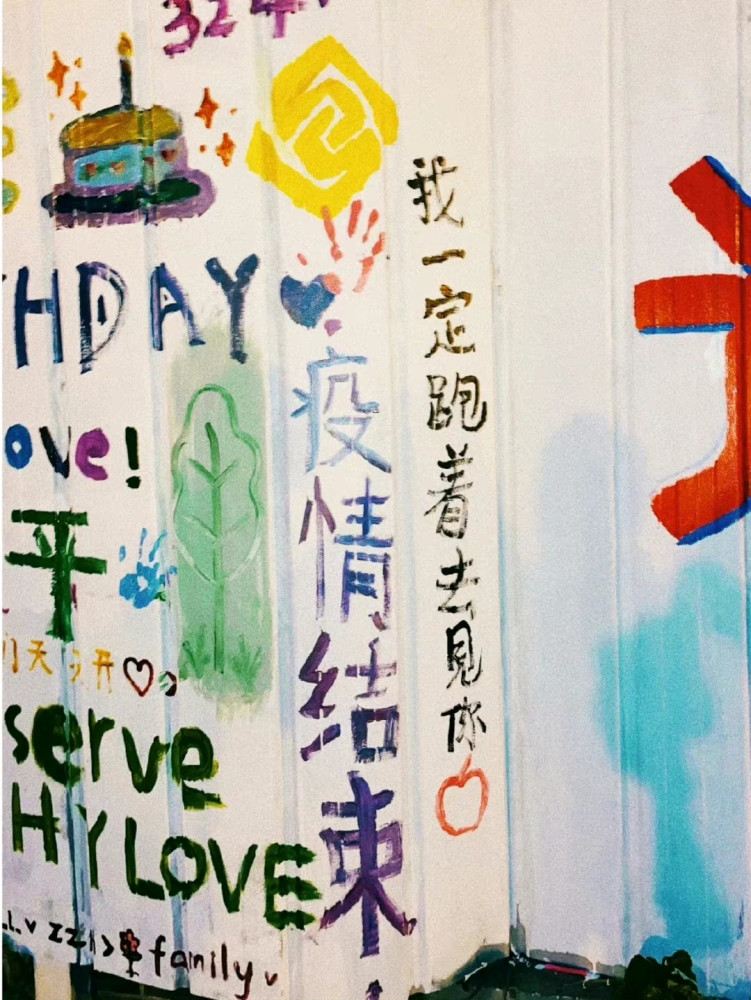 324
HDAY
ove!
平
天
开
serve
HY LOVE
family
疫情结束
我一定跑着去见你